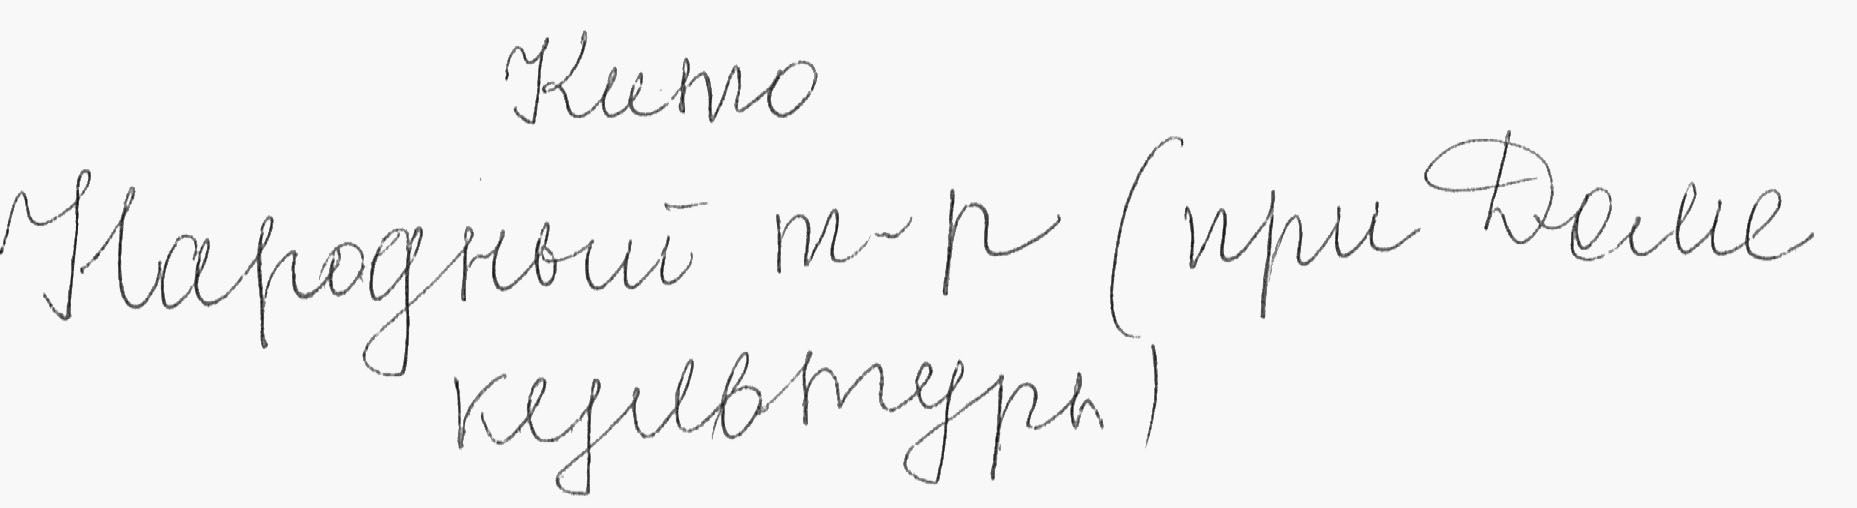 Кито
Народный т-р (при Доме
культуры)